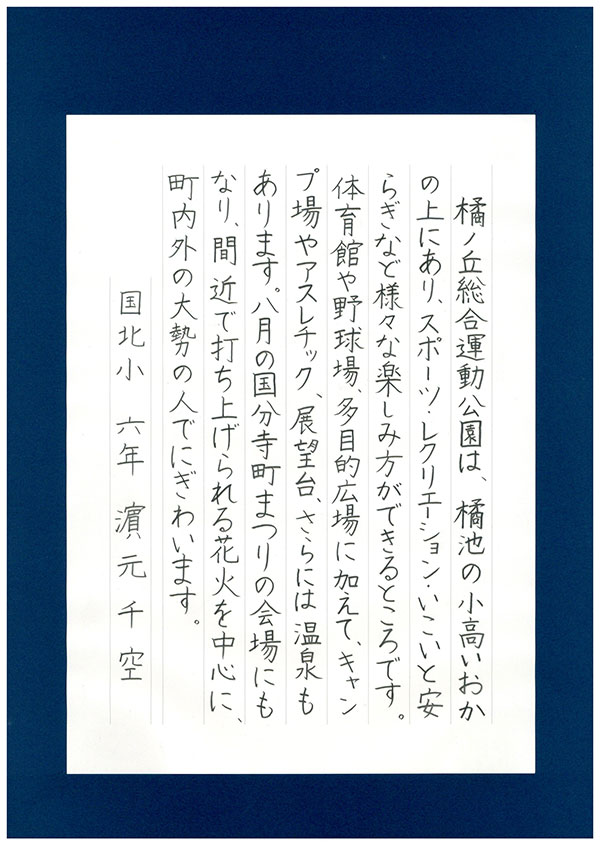 橘ノ丘総合運動公園は、橘池の小高いおか
の上にあり、スポーツ・レクリエーション・いこいと安
らぎなど様々な楽しみ方ができるところです。
体育館や野球場、多目的広場に加えて、キャン
プ場やアスレチック、展望台、さらには温泉も
あります。八月の国分寺町まつりの会場にも
なり、間近で打ち上げられる花火を中心に、
町内外の大勢の人でにぎわいます。
国北小 六年 濵元千空